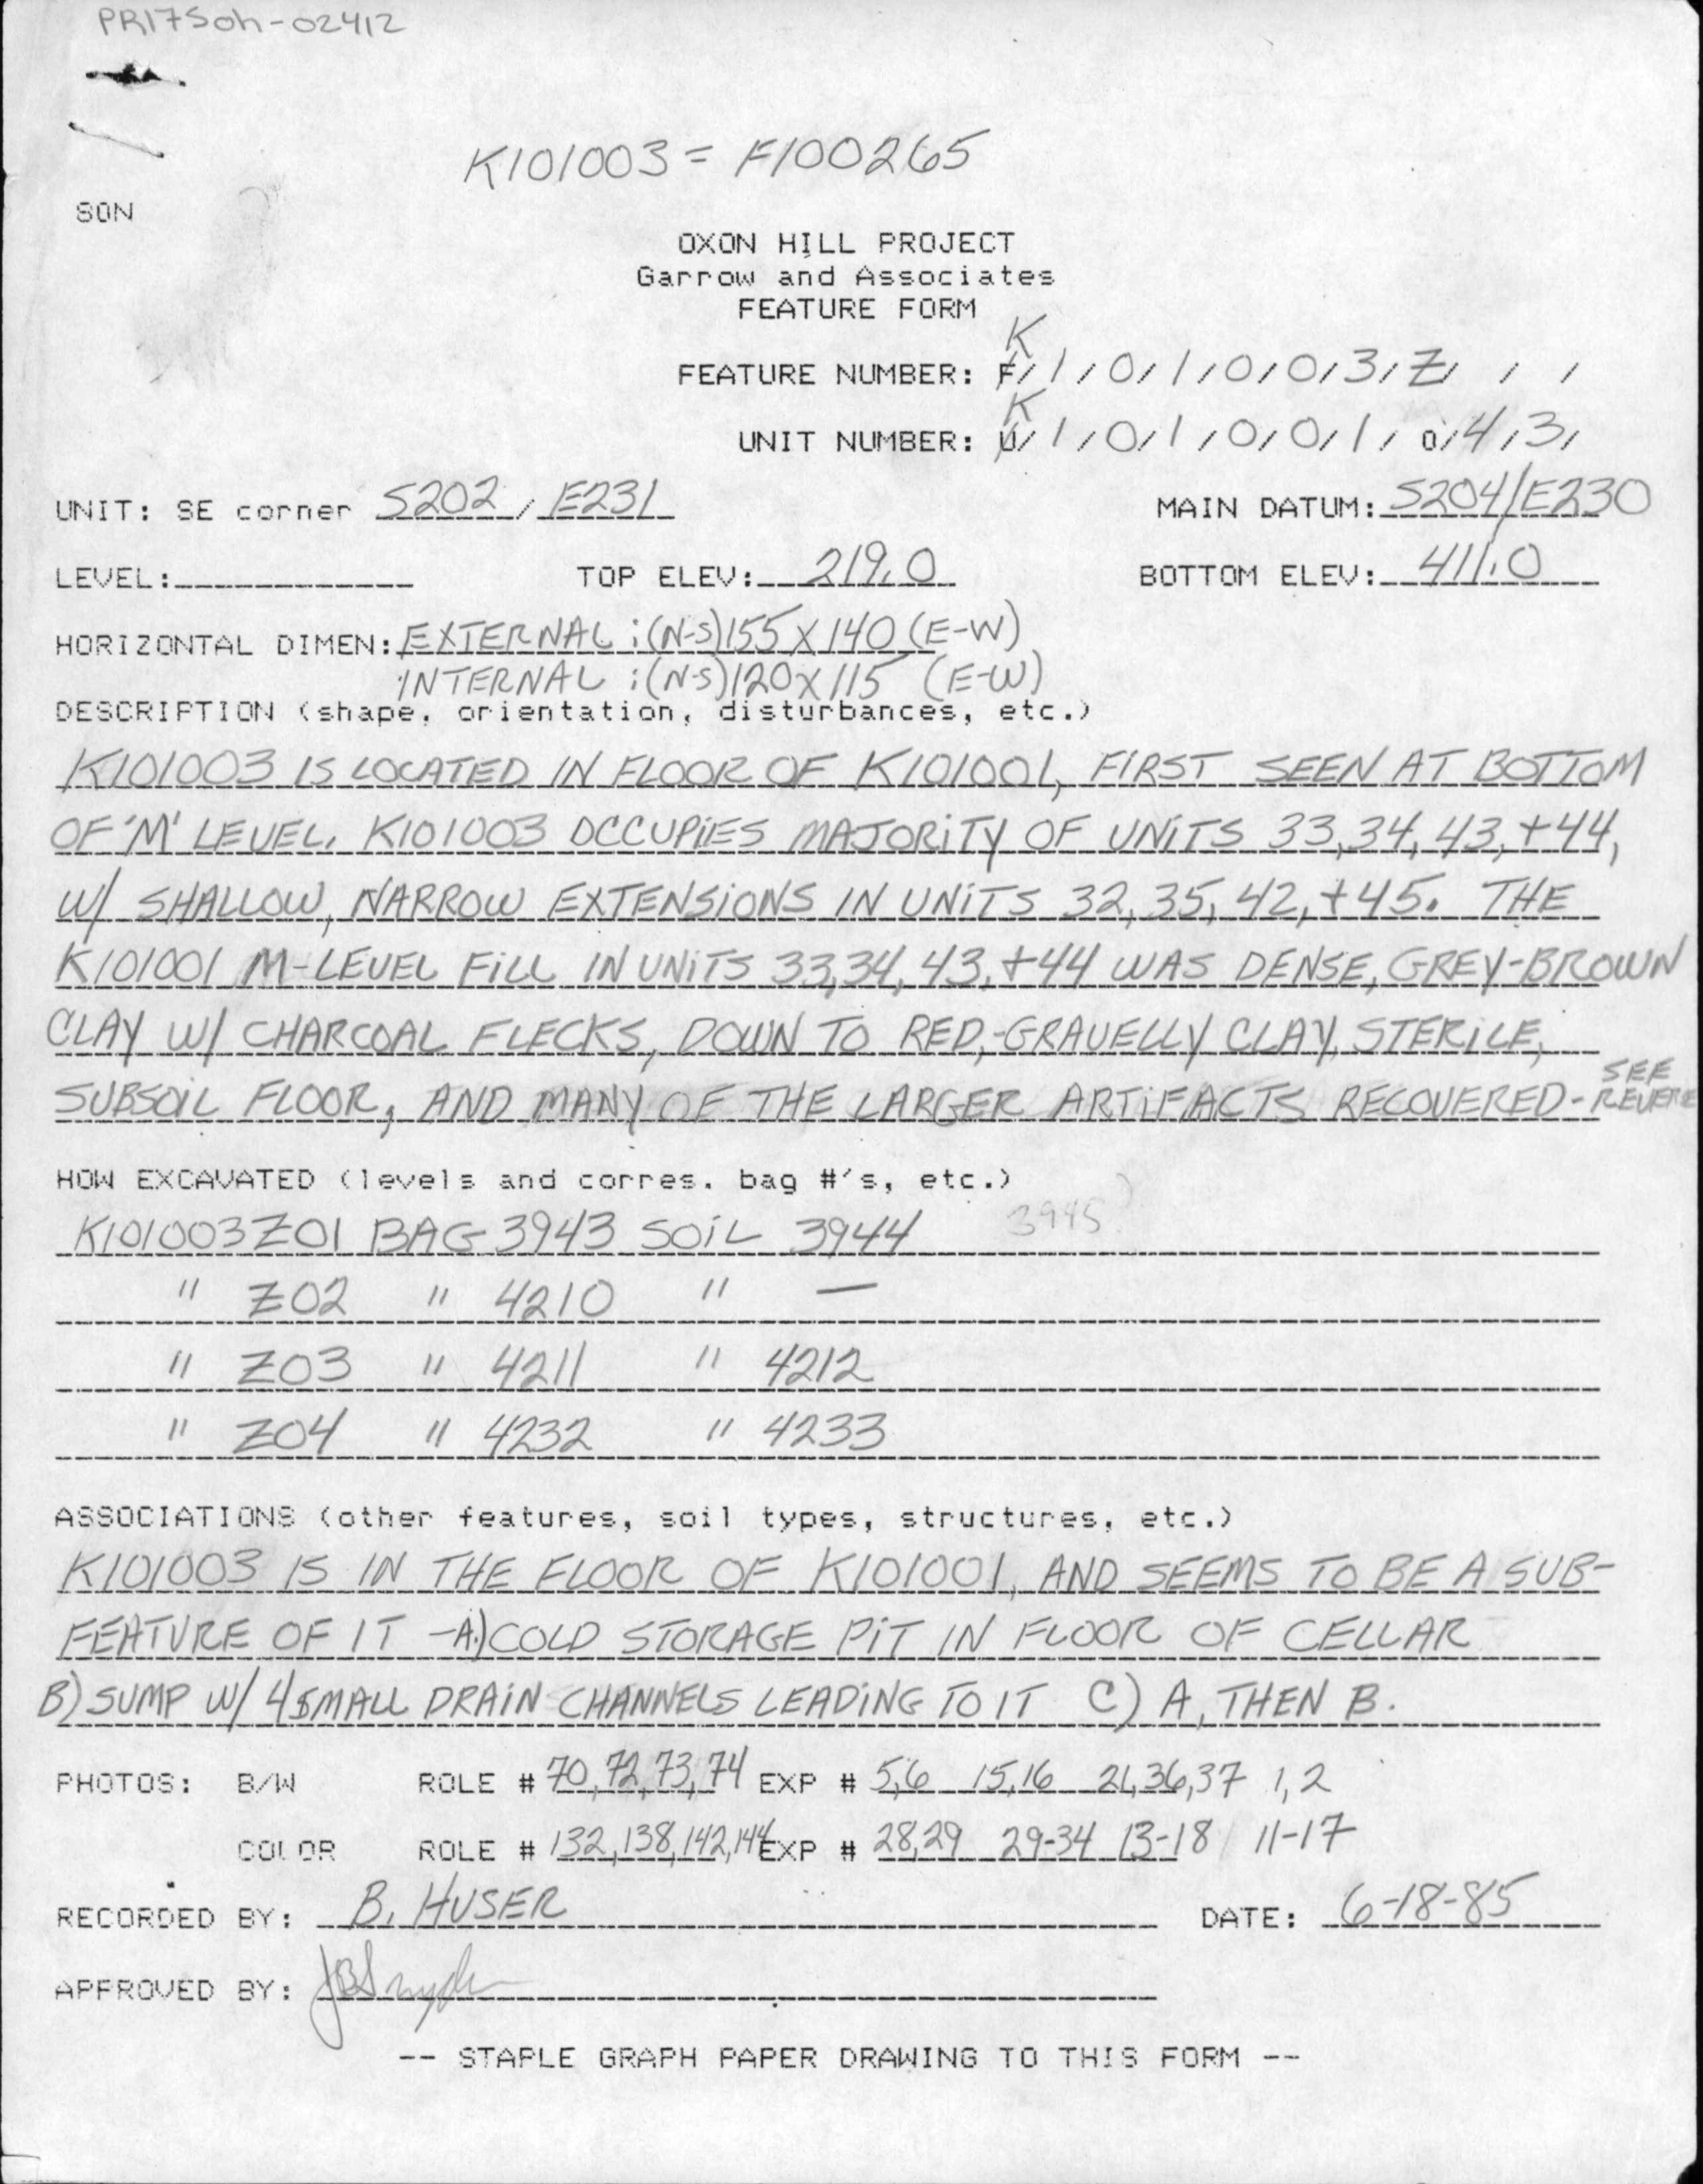 PR175oh-02412
K101003 = F100265
SON
OXON HILL PROJECT
Garrow and Associates
FEATURE FORM
FEATURE NUMBER: K/1/0/1/0/0/3/Z/ / /
UNIT NUMBER: K/1/0/1/0/0/1/0/4/3/
UNIT: SE corner S202 / E231 MAIN DATUM: S204/E230
LEVEL: TOP ELEV: 219.0 BOTTOM ELEV: 411.0
HORIZONTAL DIMEN: EXTERNAL : (N-S) 155 X 140 (E-W)
INTERNAL : (N-S) 120 X 115 (E-W)
DESCRIPTION (shape, orientation, disturbances, etc.)
K101003 IS LOCATED IN FLOOR OF K101001, FIRST SEEN AT BOTTOM
OF 'M' LEVEL. K101003 OCCUPIES MAJORITY OF UNITS 33,34,43,+44,
W/ SHALLOW, NARROW EXTENSIONS IN UNITS 32,35,42,+45. THE
K101001 M-LEVEL FILL IN UNITS 33,34,43,+44 WAS DENSE, GREY-BROWN
CLAY W/ CHARCOAL FLECKS, DOWN TO RED,-GRAVELLY CLAY, STERILE,
SUBSOIL FLOOR, AND MANY OF THE LARGER ARTIFACTS RECOVERED- SEE
REVERSE
HOW EXCAVATED (levels and corres. bag #'s, etc.)
K101003Z01 BAG 3943 SOIL 3944 3945?
" Z02 " 4210 " —
" Z03 " 4211 " 4212
" Z04 " 4232 " 4233
ASSOCIATIONS (other features, soil types, structures, etc.)
K101003 IS IN THE FLOOR OF K101001, AND SEEMS TO BE A SUB-
FEATURE OF IT -A.) COLD STORAGE PIT IN FLOOR OF CELLAR
B) SUMP W/ 4 SMALL DRAIN CHANNELS LEADING TO IT C) A, THEN B.
PHOTOS: B/W ROLE # 70,72,73,74 EXP # 5,6 15,16 21,36,37 1,2
COLOR ROLE # 132,138,142,144 EXP # 28,29 29-34 13-18 11-17
RECORDED BY: B. HUSER DATE: 6-18-85
APPROVED BY: JBSnyder
-- STAPLE GRAPH PAPER DRAWING TO THIS FORM --